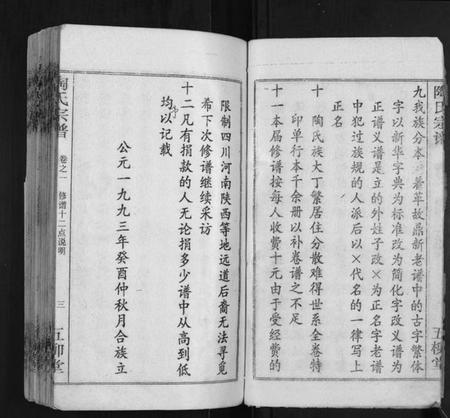 陶氏宗谱
九我族分本着革故鼎新老谱中的古字繁体
字以新华字典为标准改为简化字改义谱为
正谱义谱是立的外姓子改×为正名字老谱
中犯过族规的人派后以×代名的一律写上
正名
十 陶氏族大丁繁居住分散难得世系全卷特
印单行本千余册以补卷谱之不足
十一本届修谱按每人收费十元由于受经费的
五柳堂
陶氏宗谱
卷之一 修谱十二点说明
三
五柳堂
限制四川河南陕西等地远道后裔无法寻觅
希下次修谱继续采访
十二凡有捐款的人无论捐多少谱中从高到低
均以记载
公元一九九三年癸酉仲秋月合族立